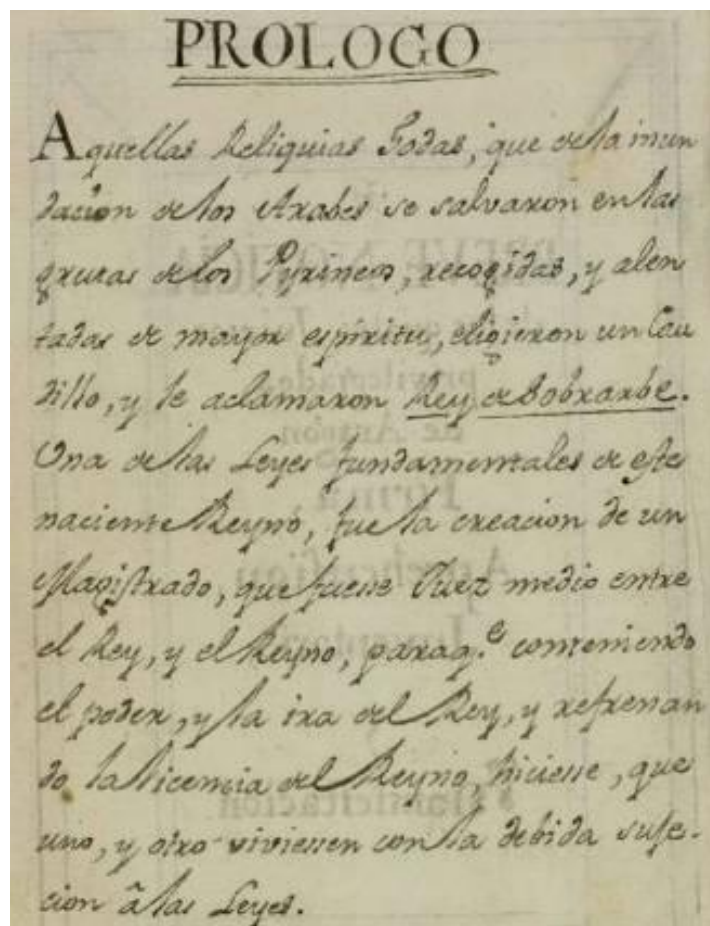 PROLOGO
Aquellas Reliquias Godas, que de la inun
dacion de los Arabes se salvaron en las
grutas de los Pyrineos, recogidas, y alen
tadas de mayor espiritu, eligieron un Cau
dillo, y le aclamaron Rey de Sobrarbe.
Una de las Leyes fundamentales de este
naciente Reyno, fue la creacion de un
Magistrado, que fuesse Juez medio entre
el Rey, y el Reyno, paraq.e conteniendo
el poder, y la ira del Rey, y refrenan
do la licencia del Reyno, hiciesse, que
uno, y otro viviessen con la debida suje-
cion â las Leyes.